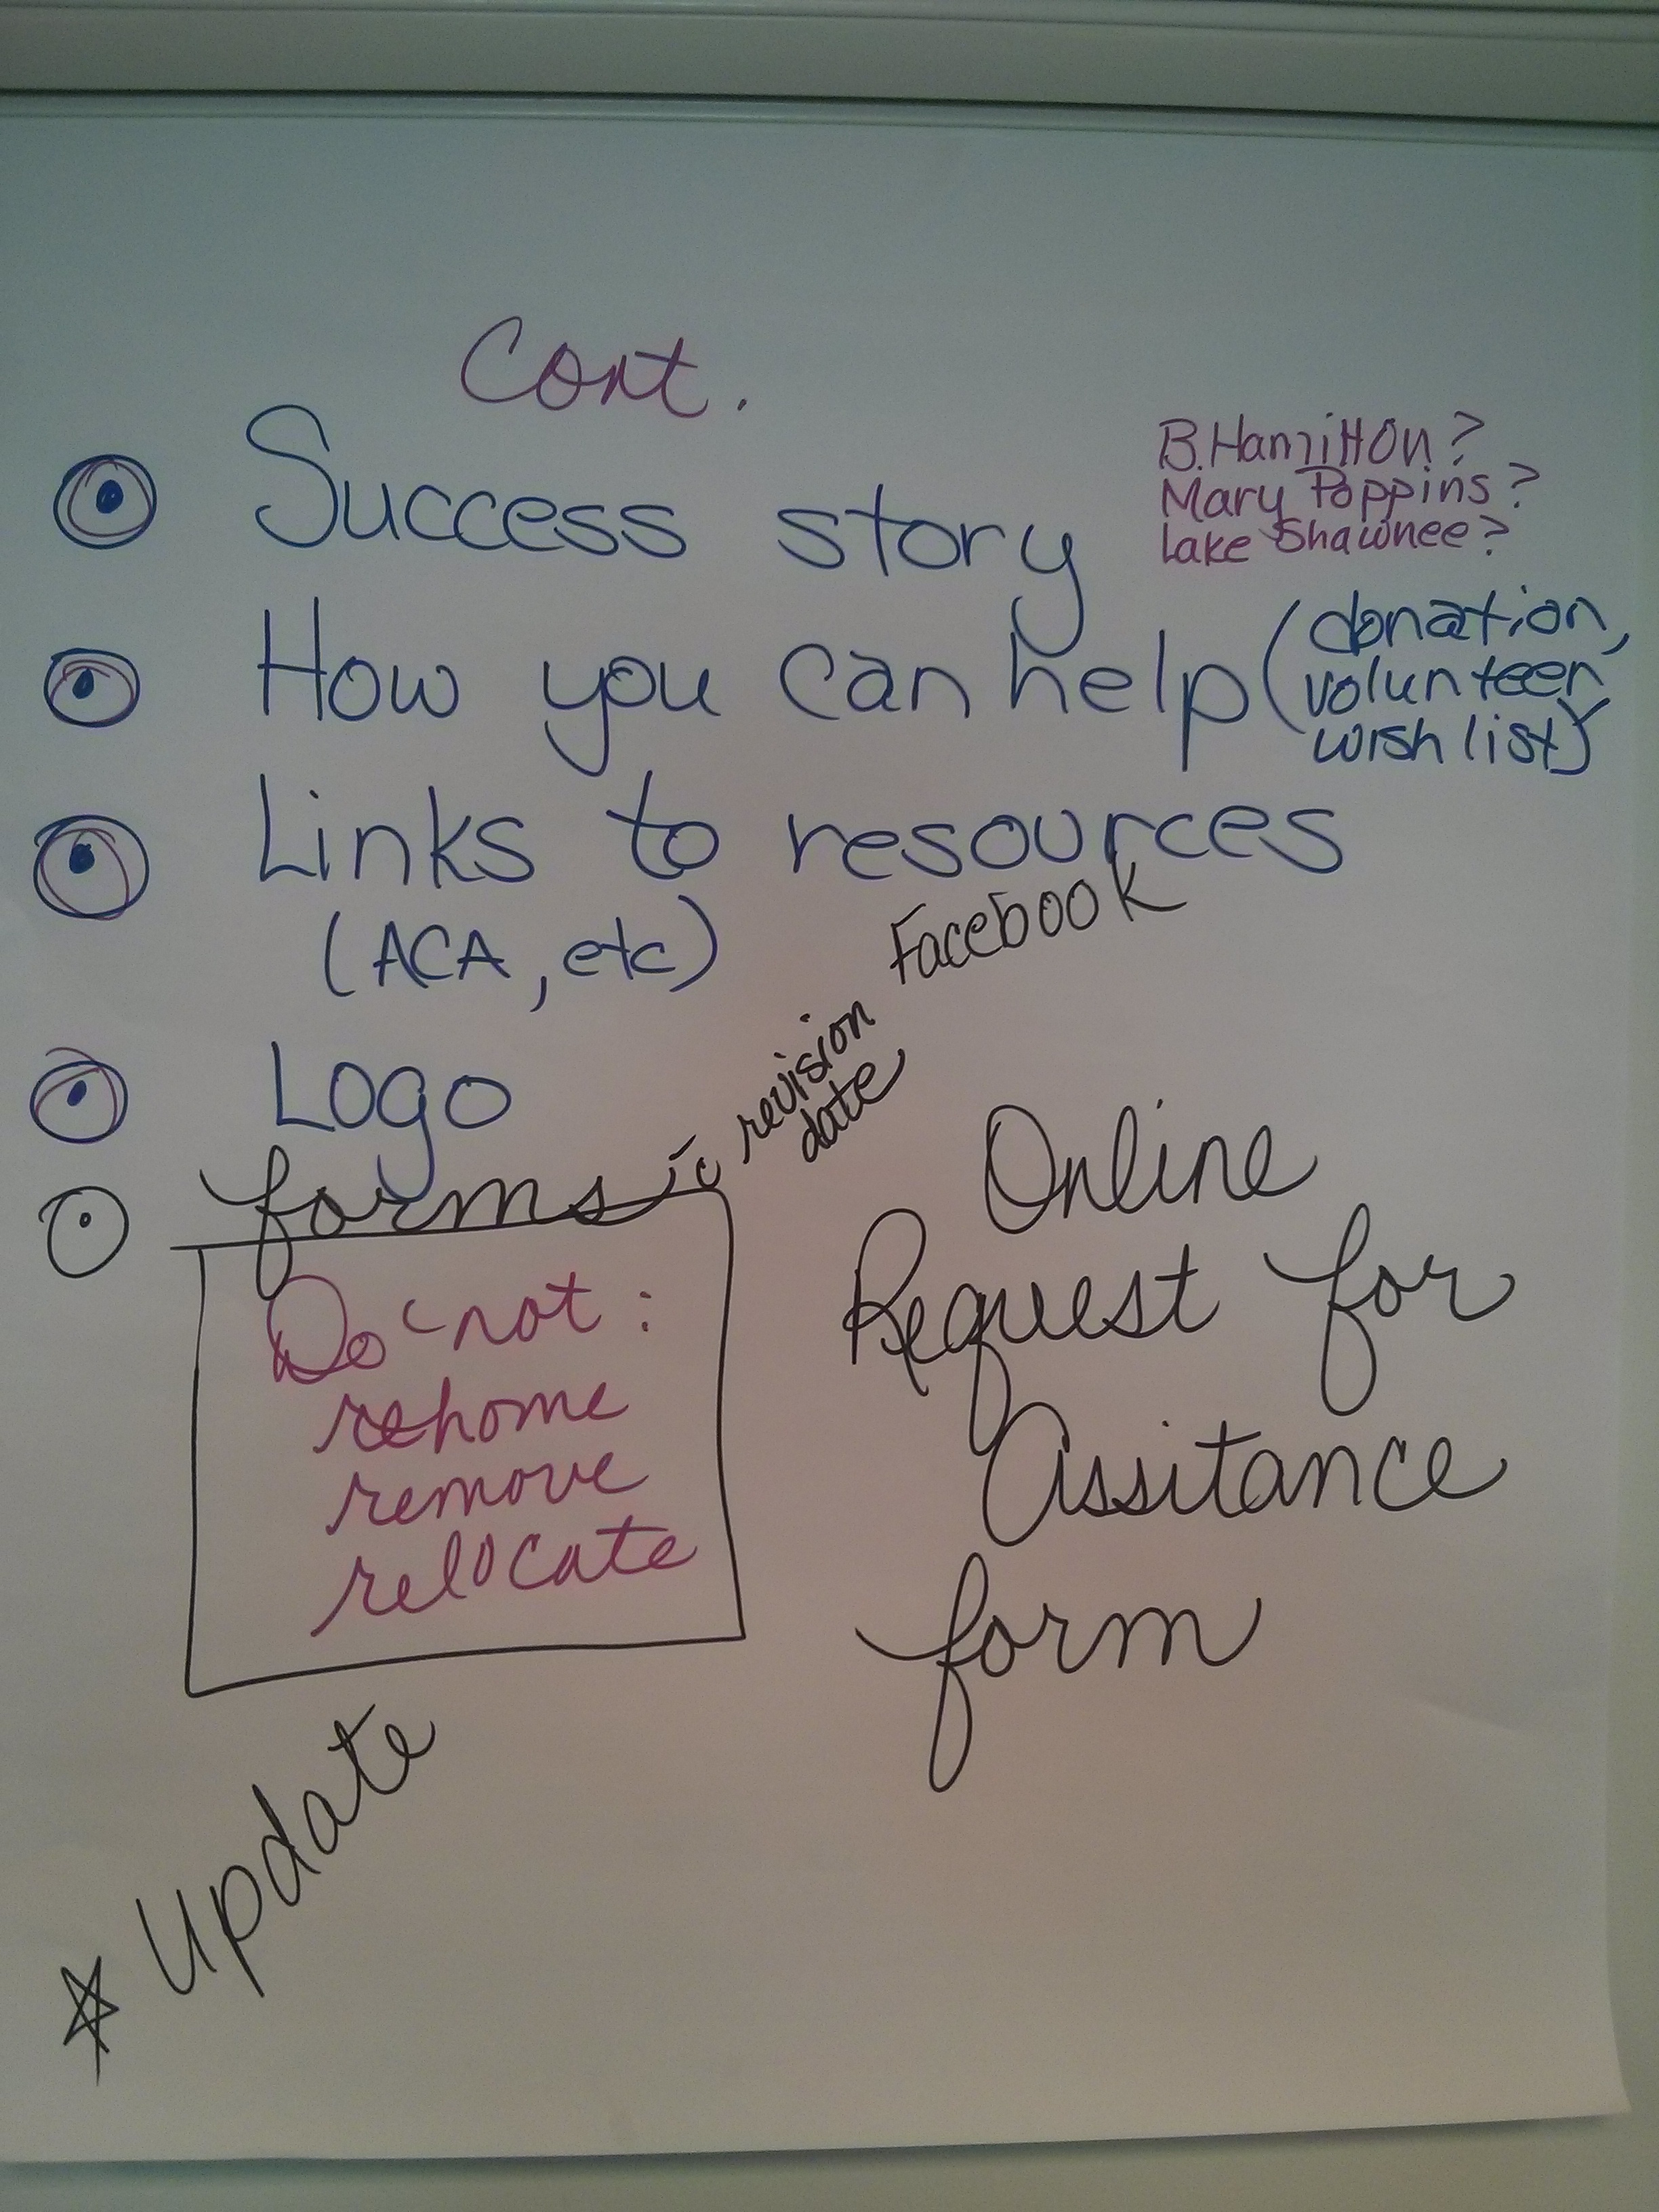 Cont.
Success story
B. Hamilton?
Mary Poppins?
Lake Shawnee?
How you can help (donation,
volunteer,
wish list)
Links to resources
(ACA, etc)
Facebook
Logo
forms
revision
date
Do not:
rehome
remove
relocate
Online
Request for
Assitance
form
Update